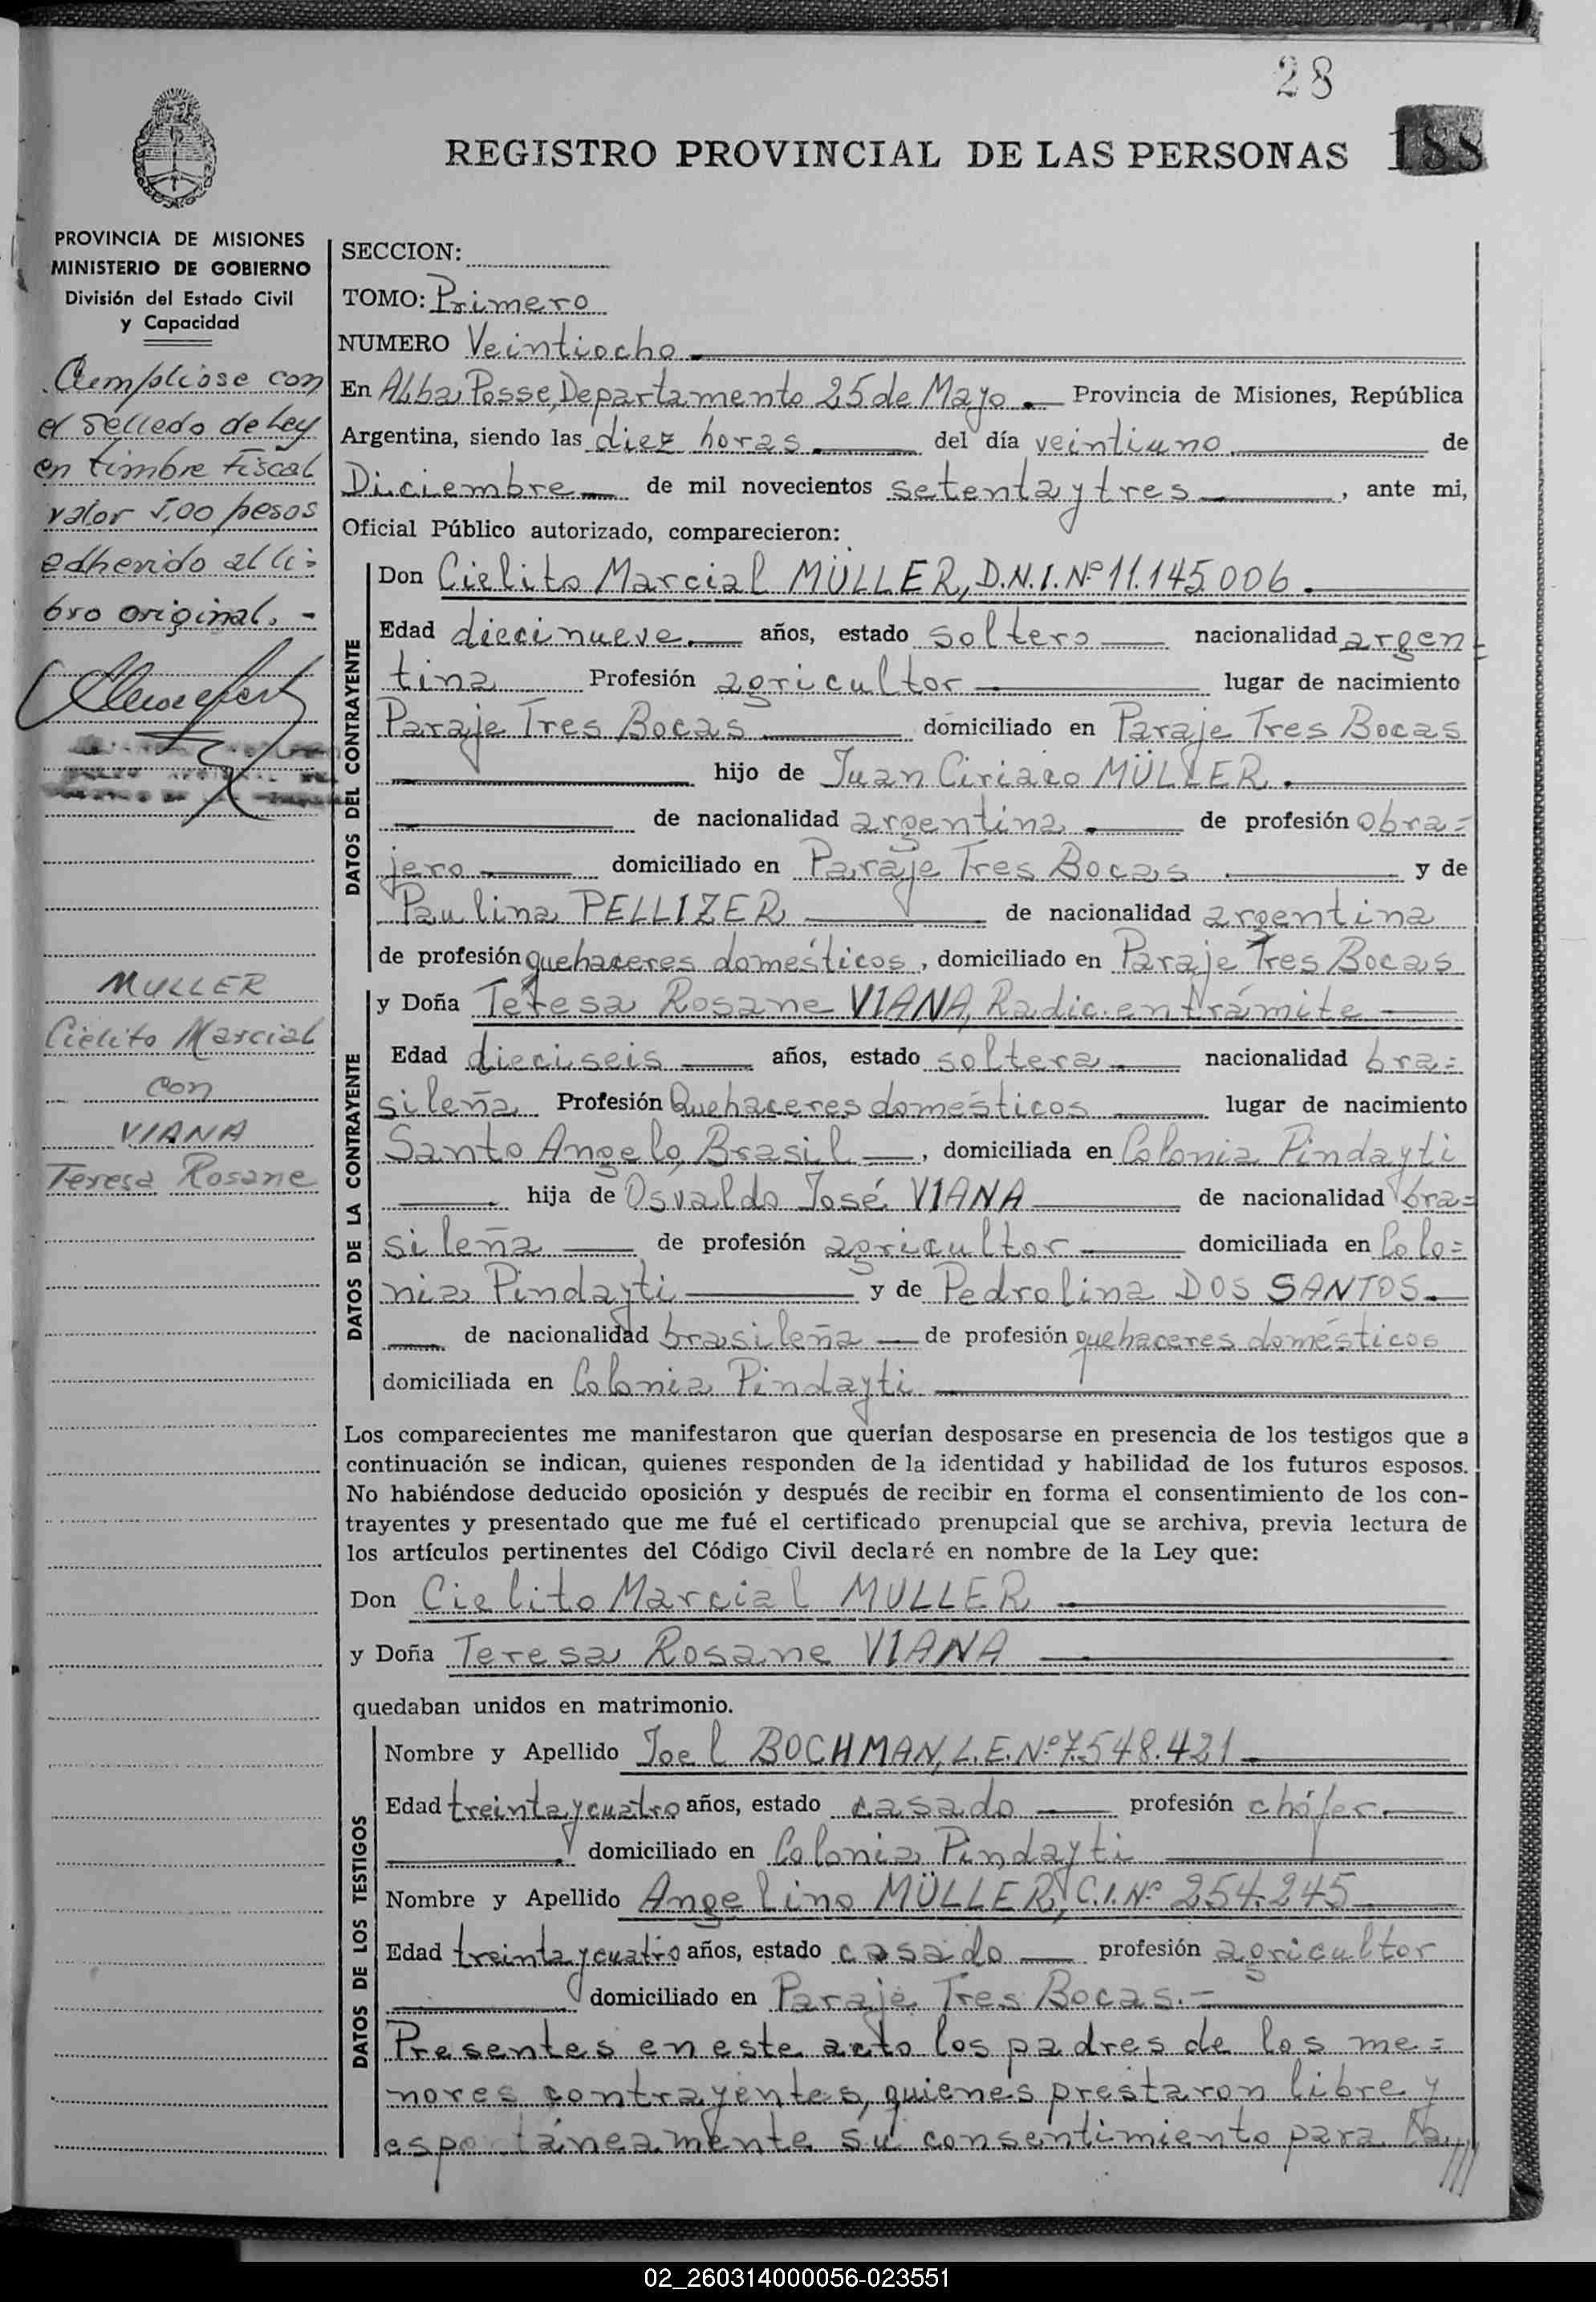 28
REGISTRO PROVINCIAL DE LAS PERSONAS 188
PROVINCIA DE MISIONES
MINISTERIO DE GOBIERNO
División del Estado Civil
y Capacidad
Cumplióse con
el Sellado de Ley
en timbre Fiscal
valor 5,00 pesos
adherido al li=
bro original. -
MULLER
Cielito Marcial
con
VIANA
Teresa Rosane
SECCION:
TOMO: Primero
NUMERO Veintiocho
En Alba Posse, Departamento 25 de Mayo. Provincia de Misiones, República
Argentina, siendo las diez horas del día veintiuno de
Diciembre de mil novecientos setenta y tres, ante mi,
Oficial Público autorizado, comparecieron:
DATOS DEL CONTRAYENTE
Don Cielito Marcial MÜLLER, D.N.I. Nº 11.145.006.
Edad diecinueve años, estado soltero nacionalidad argen=
tina Profesión agricultor lugar de nacimiento
Paraje Tres Bocas domiciliado en Paraje Tres Bocas
hijo de Juan Ciriaco MÜLLER.
de nacionalidad argentina. de profesión obra=
jero domiciliado en Paraje Tres Bocas y de
Paulina PELLIZER de nacionalidad argentina
de profesión quehaceres domésticos, domiciliado en Paraje Tres Bocas
DATOS DE LA CONTRAYENTE
y Doña Teresa Rosane VIANA, Radic. en trámite
Edad dieciseis años, estado soltera nacionalidad bra=
sileña Profesión Quehaceres domésticos lugar de nacimiento
Santo Angelo, Brasil, domiciliada en Colonia Pindayti
hija de Osvaldo José VIANA de nacionalidad bra=
sileña de profesión agricultor domiciliada en Colo=
nia Pindayti y de Pedrolina DOS SANTOS
de nacionalidad brasileña de profesión quehaceres domésticos
domiciliada en Colonia Pindayti
Los comparecientes me manifestaron que querían desposarse en presencia de los testigos que a
continuación se indican, quienes responden de la identidad y habilidad de los futuros esposos.
No habiéndose deducido oposición y después de recibir en forma el consentimiento de los con-
trayentes y presentado que me fué el certificado prenupcial que se archiva, previa lectura de
los artículos pertinentes del Código Civil declaré en nombre de la Ley que:
Don Cielito Marcial MULLER
y Doña Teresa Rosane VIANA
quedaban unidos en matrimonio.
DATOS DE LOS TESTIGOS
Nombre y Apellido Joel BOCHMAN, L.E. Nº 7.548.421
Edad treinta y cuatro años, estado casado profesión chófer
domiciliado en Colonia Pindayti
Nombre y Apellido Angelino MÜLLER, C.I. Nº 254.245
Edad treinta y cuatro años, estado casado profesión agricultor
domiciliado en Paraje Tres Bocas.-
Presentes en este acto los padres de los me=
nores contrayentes, quienes prestaron libre y
espontáneamente su consentimiento para la///
02_260314000056-023551